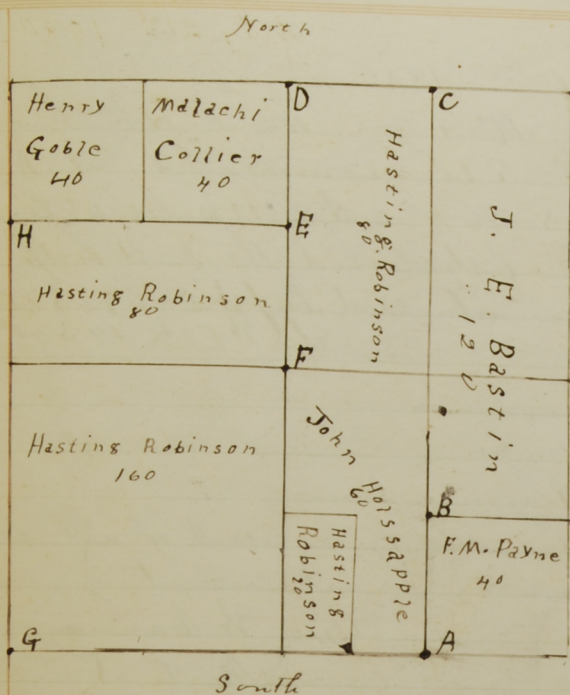 North
D
C
Henry
Goble
40
Malachi
Collier
40
Hasting Robinson
80
J. E. Bastin
120
H
E
Hasting Robinson
80
F
Hasting Robinson
160
John Holssapple
60
B
Hasting
Robinson
20
F. M. Payne
40
G
A
South